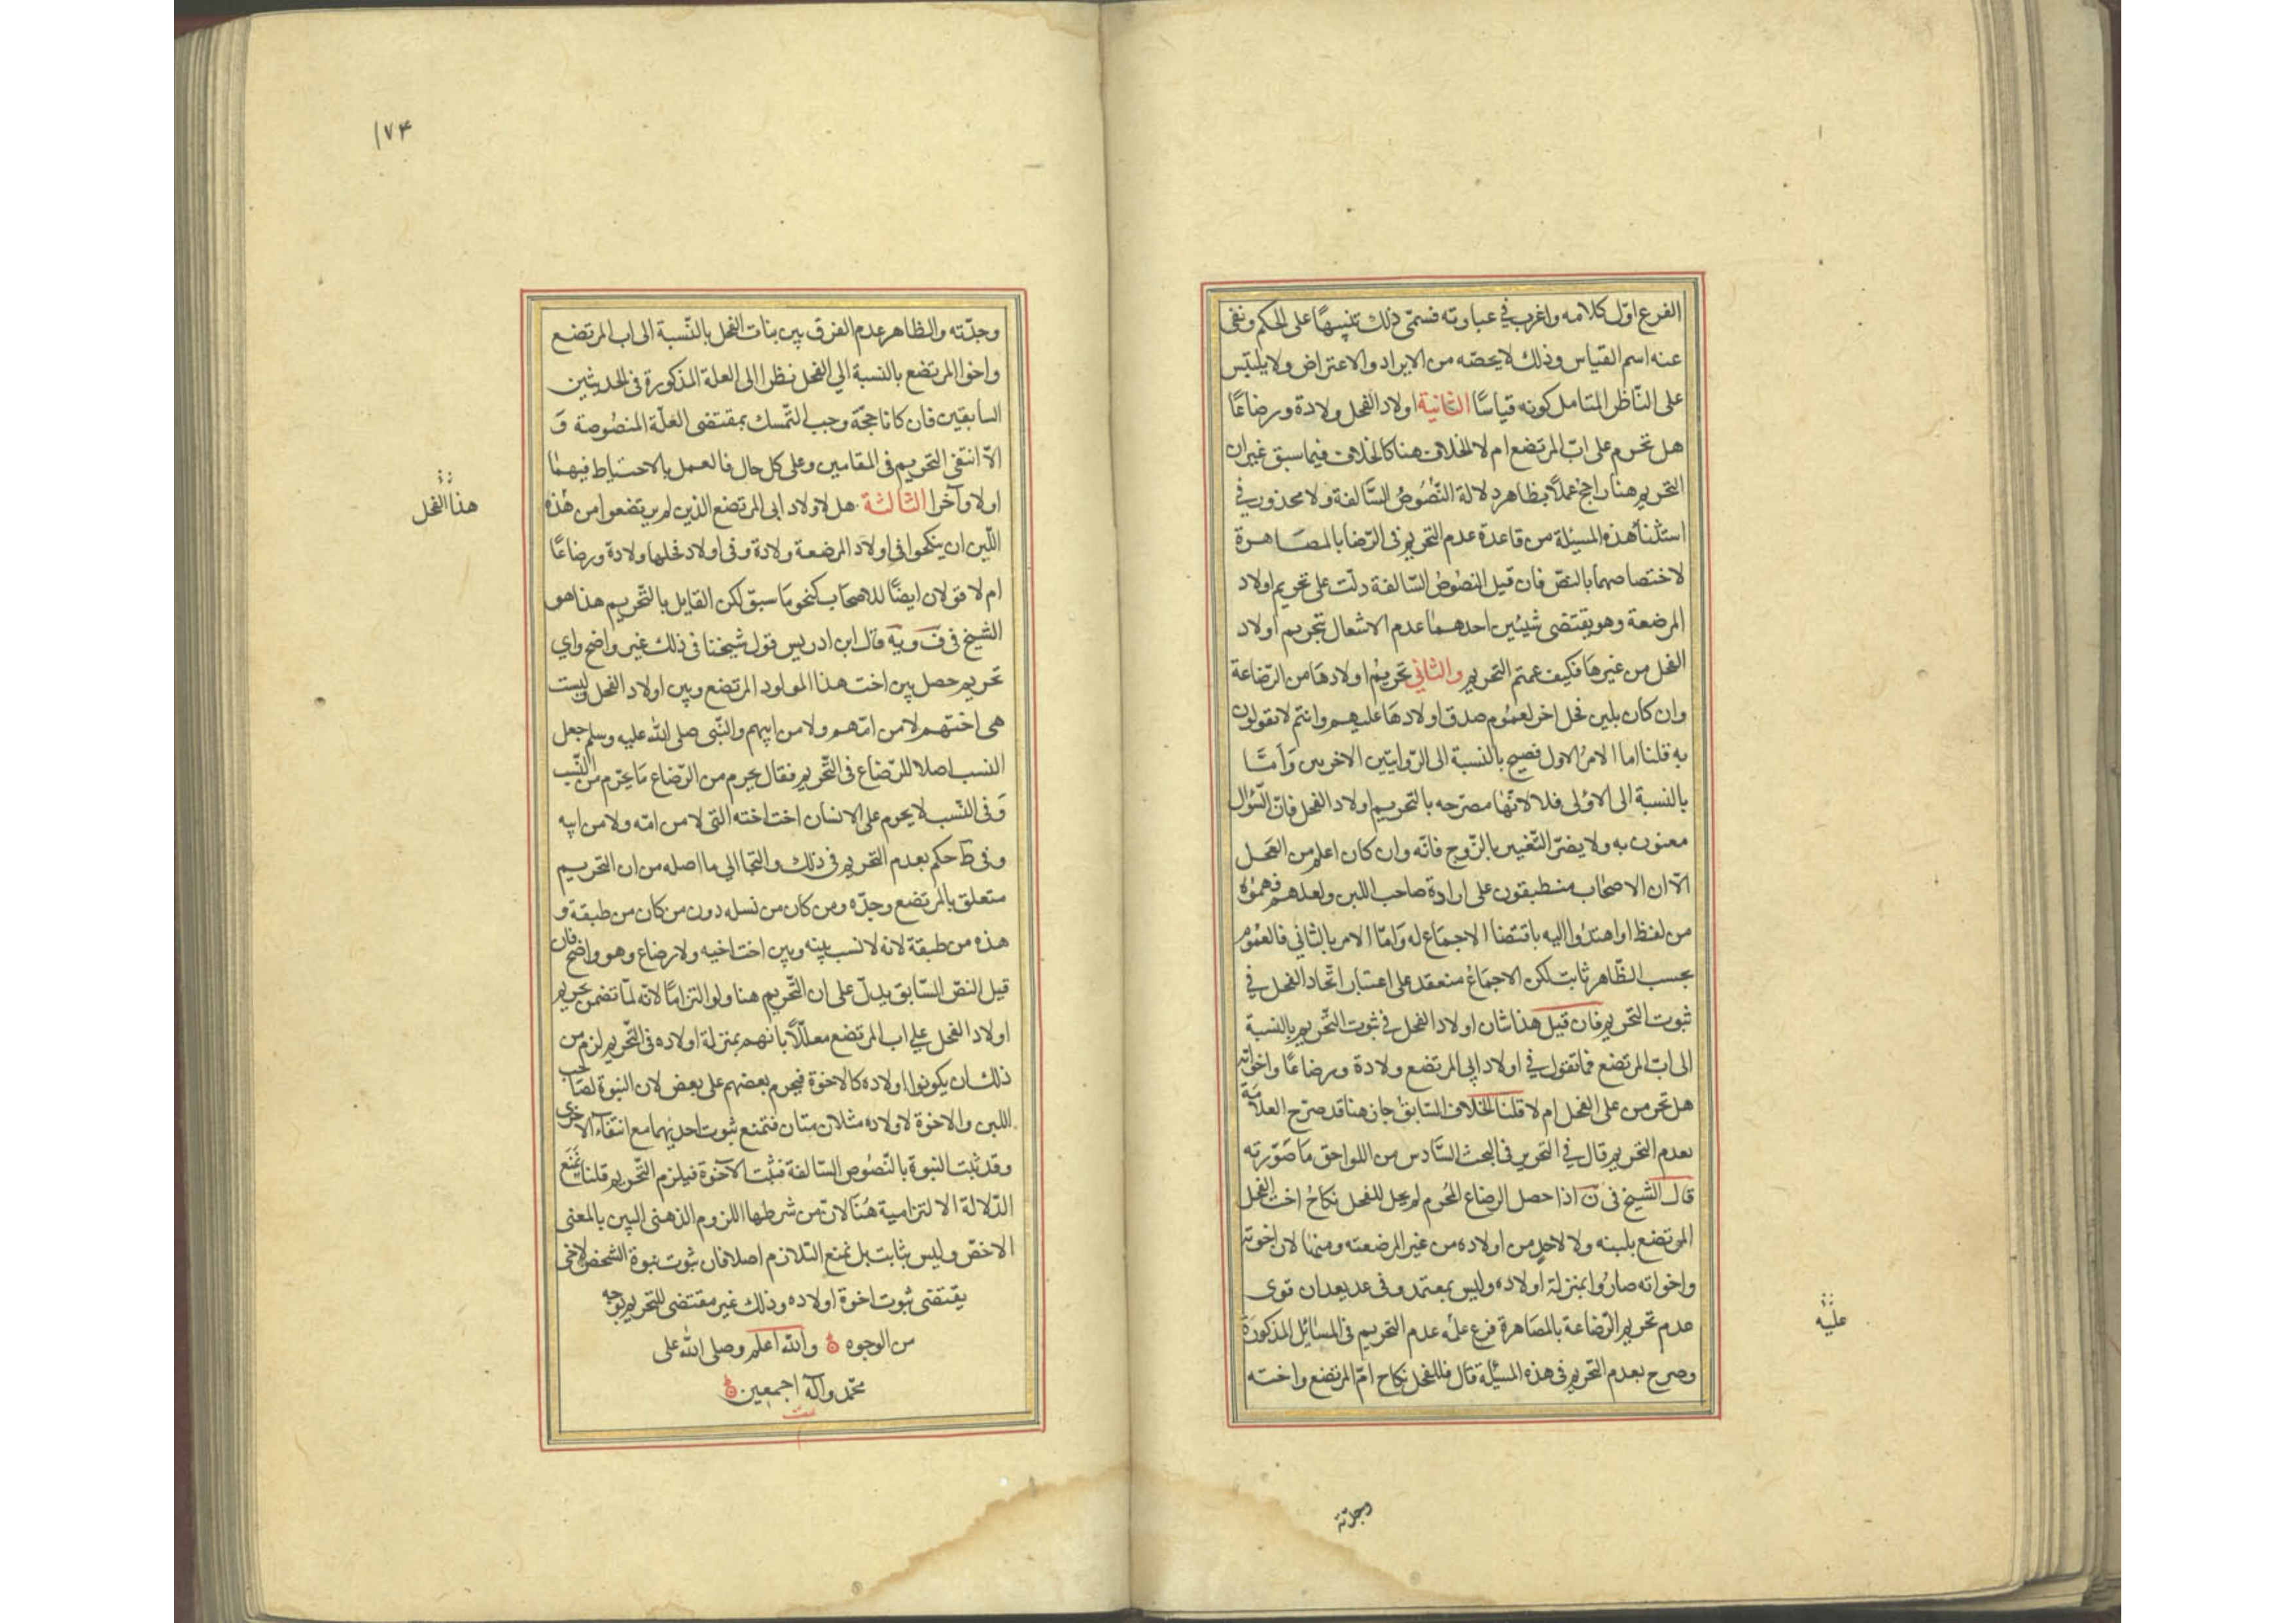 الفرع اوّل كلامه واغرب في عبارته فسمّى ذلك تنبيهًا على الحكم ونفى
عنه اسم القياس وذلك لا يحصّه من الايراد والاعتراض ولا يلتبس
على النّاظر المتامل كونه قياسًا الثانية اولاد الفحل ولادة ورضاعًا
هل تحرم على ابّ المرتضع ام لا الخلاف هنا كالخلاف فيما سبق غير ان
التحريم هنا راجح عملًا بظاهر دلالة النّصُوصُ السَّالفة ولا محذور في
استثنأ هذه المسيئلة من قاعدة عدم التّحريم في الرّضا بالمصاهرة
لاختصاصها بالنصّ فان قيل النصُوصُ السّالفة دلّت على تحريم اولاد
المرضعة وهو يقتضى شيئين احدهما عدم الاشعال بتحريم اولاد
الفحل من غيرها فكيف عمتم التحريم والثاني تحريمُ اولادها من الرّضاعة
وان كان بلبن فحل اخر لعموم صدق اولادها عليهم وانتم لا تقولون
به قلنا اما الامر الاول فصيح بالنسبة الى الرّوايتين الاخريين وَامّا
بالنسبة الى الاوُلى فلا لانّها مصرّحه بالتحريم اولاد الفحل فانّ السّؤال
معنون به ولا يضرّ التّغيير بالزّوج فانّه وان كان اعلم من الفحل
الّا ان الاصحاب منطبقون على ارادة صاحب اللبن ولعلهم فهموُه
من لفظ او اهتدُوا اليه باقتضا الاجماع له وَامّا الامر بالثاني فالعمُوم
بحسب الظّاهر ثابت لكن الاجماعُ منعقد على اعتبار اتّحاد الفحل في
ثبوت التحريم فان قيل هذا شان اولاد الفحل في ثبوت التّحريم بالنسبة
الى ابّ المرتضع فما تقول في اولاد ابى المرتضع ولادة ورضاعًا واخواته
هل تحرمن على الفحل ام لا قلنا الخلاف السّابق جان هنا قد صرّح العلامة
بعدم التحريم قال في التحرير في البحث السّادس من اللواحق مَا صَوّرته
قال الشيخ في ف اذا حصل الرضاع المُحرم لم يحل للفحل نكاحُ اخت الفحل
المرتضع بلبنه ولا لاحدٍ من اولاده من غير المرضعته ومنها لان اخوته
واخواته صارُوا بمنزلة اولاده وليس بمعتمد وفي عد بعد ان قوى
عدم تحريم الرّضاعة بالمصَاهرة فرع علىُه عدم التحريم في المسائل المذكورة
وصرح بعدم التحريم في هذه المسئلة قال فللفحل نكاح امّ المرتضع واخته
عليه
وجدّته
١٧٤
وجدّته والظاهر عدم الفرق بين بنات الفحل بالنّسبة الى اب المرتضع
واخوا المرتضع بالنسبة الى الفحل نظرا الى العلة المذكورة في الحديثين
السابقين فان كانا حجّة وجب التّمسك بمقتضى العلّة المنصُوصة وَ
الّا انتفى التحريم في المقامين وعلى كل حال فالعمل بالاحتياط فيهما
اولا وآخرا الثالثة هل لاولاد ابى المرتضع الذين لم يرتضعوا من هذه
اللّبن ان ينكحوا في اولاد المرضعة ولادة وفي اولاد فحلها ولادة ورضاعًا
ام لا قولان ايضًا للاصحاب كنحو ما سبق لكن القايل بالتّحريم هذا هو
الشيخ في ف ويه قال ابن ادريس قول شيخنا في ذلك غير واضح واي
تحريم حصل بين اخت هذا المولود المرتضع وبين اولاد الفحل وليست
هى اختهم لا من امّهم ولا من ابيهم والنّبى صلى الله عليه وسلم جعل
النسب اصلا للرّضاع في التّحريم فقال يحرم من الرّضاع مَا يحرّم من النّسب
وَفى النّسب لا يحرم على الانسان اخت اخته التى لا من امّه ولا من ابيه
وفى ط حكم بعدم التحريم في ذلك والتجا الى ما اصله من ان التحريم
متعلق بالمرتضع وجدّه ومن كان من نسله دون من كان من طبقة و
هذه من طبقة لانه لا نسب بينه وبين اخت اخيه ولا رضاع وهو واضح فان
قيل النصّ السّابق يدلّ على ان التّحريم هنا ولو التزامًا لانّه لمّا تضمن تحريم
اولاد الفحل على اب المرتضع معللًا بانهم بمنزلة اولاده في التّحريم لزم من
ذلك ان يكونوا اولاده كالاخوة فيحرم بعضهم على بعض لان البنوة لصاحب
اللبن والاخوة لاولاده مثلان متان فتمنع ثبوت احديهما مع انتفاء الاخرى
وقد ثبت النبوة بالنّصُوص السّالفة فثبت الآخوة فيلزم التّحريم قلنا نمنَع
الدّلالة الالتزامية هُنَا لانّ من شرطها اللزوم الذهنى البين بالمعنى
الاخصّ وليس بثابت بل نمنع التلازم اصلا فان ثبوت نبوة الشخص لاخى
يقتضى ثبوت اخوة اولاده وذلك غير مقتضى للتحريم بوجه
من الوجوه والله اعلم وصلى الله على
محمّد وآله اجمعين
تمت
هذا الفحل